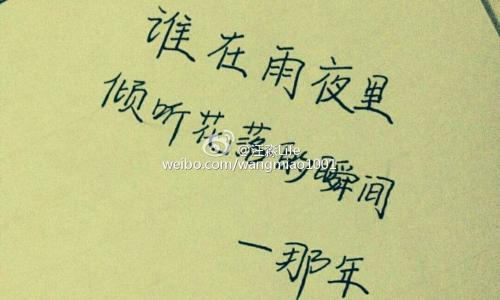 谁在雨夜里
倾听花落的瞬间
@汪淼Life
weibo.com/wangmiao1001
一那年